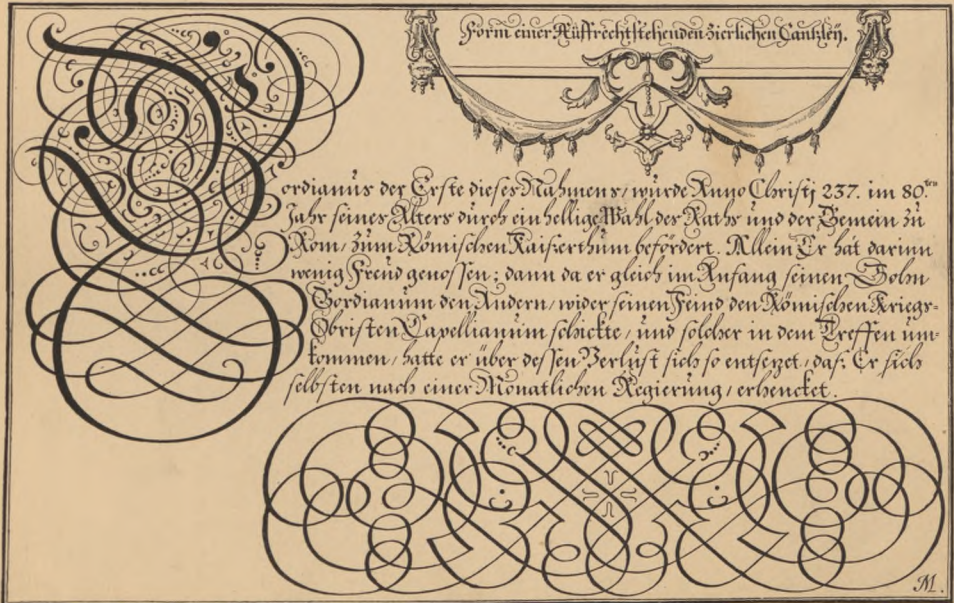 Form einer Auffrechtstehenden zierlichen Cantzleÿ.
Gordianus der Erste dieses Nahmens/ wurde Anno Christj 237. im 80.ten
Jahr seines Alters durch einhellige Wahl des Raths und der Gemein zu
Rom/ zum Römischen Kaiserthum befördert. Allein Er hat darinn
wenig Freud genossen; dann da er gleich im Anfang seinen Sohn
Gordianum den Andern/ wider seinen Feind den Römischen Kriegs-
Obristen Capellianum schickte/ und solcher in dem Treffen um-
kommen/ hatte er über dessen Verlust sich so entsezet/ das: Er sich
selbsten nach einer Monatlichen Regierung/ erhencket.
M.